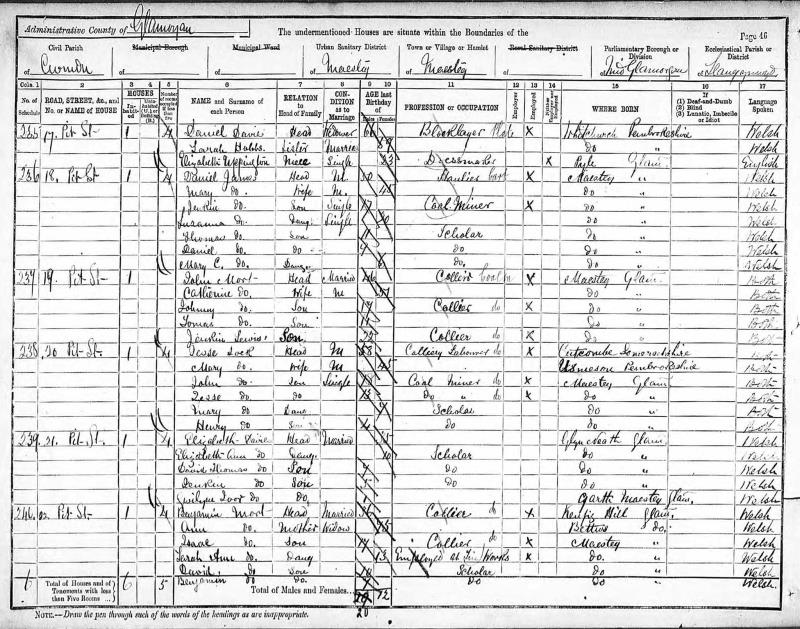 Administrative County of Glamorgan
The undermentioned Houses are situate within the Boundaries of the
Page 46
Civil Parish
of Cwmdu
Municipal Borough
of
Municipal Ward
of
Urban Sanitary District
of Maesteg
Town or Village or Hamlet
of Maesteg
Rural Sanitary District
of
Parliamentary Borough or Division
of Mid Glamorgan
Ecclesiastical Parish or District
of Llangynwyd
Cols. 1 2 3 4 5 6 7 8 9 10 11 12 13 14 15 16 17
No. of Schedule
ROAD, STREET, &c., and No. or NAME of HOUSE
HOUSES
Inhabited
NAME and Surname of each Person
RELATION to Head of Family
CONDITION as to Marriage
AGE last Birthday of
Males
Females
PROFESSION or OCCUPATION
Employer
Employed
WHERE BORN
If
(1) Deaf-and-Dumb
(2) Blind
(3) Lunatic, Imbecile or Idiot
Language Spoken
235 17. Pit St 1 4 Daniel Head Widower Whitchurch Pembrokeshire Welsh
Sarah Hobbs Sister Married Do Welsh
Elizabeth Niece Single 23 Dressmaker x Pyle Glam English
236 18. Pit St 1 4 Daniel James Head M Haulier x Maesteg " Welsh
Mary Do. Wife M. 45 Do " Welsh
Jenkin Do. Son Single 17 Coal Miner x Do " Welsh
Susanna Do. Daug Single Do " Welsh
Thomas Do. Son 11 Scholar Do " Welsh
Daniel Do. Do 9 Do Do " Welsh
Mary C. Do. Daugr Do Do " Welsh
237 19. Pit St 1 John Mort Head Married Collier x Maesteg Glam. Both
Catherine Do Wife M Do " Both
Johnny Do Son Collier do x Do " Both
Tomas Do. Son 14 Do " Both
Jenkin Lewis Son 22 Collier do x Do " Both
238 20 Pit St. 1 4 Jesse Lock Head M 58 Colliery Labourer do x Cutcombe Somersetshire Both
Mary Do. Wife M 45 Pembrokeshire Both
John do. Son Single Coal Miner do x Maesteg Glam Both
Jesse Do Do Do " do x Do " Both
Mary Do Daug Scholar Do " Both
Henry Do Son 4 Do Do " Both
239 21. Pit St. 1 4 Elizabeth Head Married Glyn Neath Glam. Welsh
Elizabeth Ann Do Daug. 10 Scholar Do " Welsh
David Thomas Do Son 7 Do Do " Welsh
Jenkin Do Son 5 Do Do " Welsh
Gwilym Ivor Do Do, Garth Maesteg Glam. Welsh
240 22 Pit St 1 4 Benjamin Mort Head Married Collier do x Kenfig Hill Glam, Welsh
Ann Do. Mother Widow 75 Bettws do. Welsh
Isaac Do Son 14 Collier do x Maesteg " Welsh
Sarah Ann do. Daug 13 Employed at Tin Works x Do. " Welsh
David Do Son Scholar Do " Welsh
Benjamin Do Do. Do Do " Welsh
6 Total of Houses and of Tenements with less than Five Rooms ... 6 5 Total of Males and Females... 12
20
NOTE.—Draw the pen through such of the words of the headings as are inappropriate.